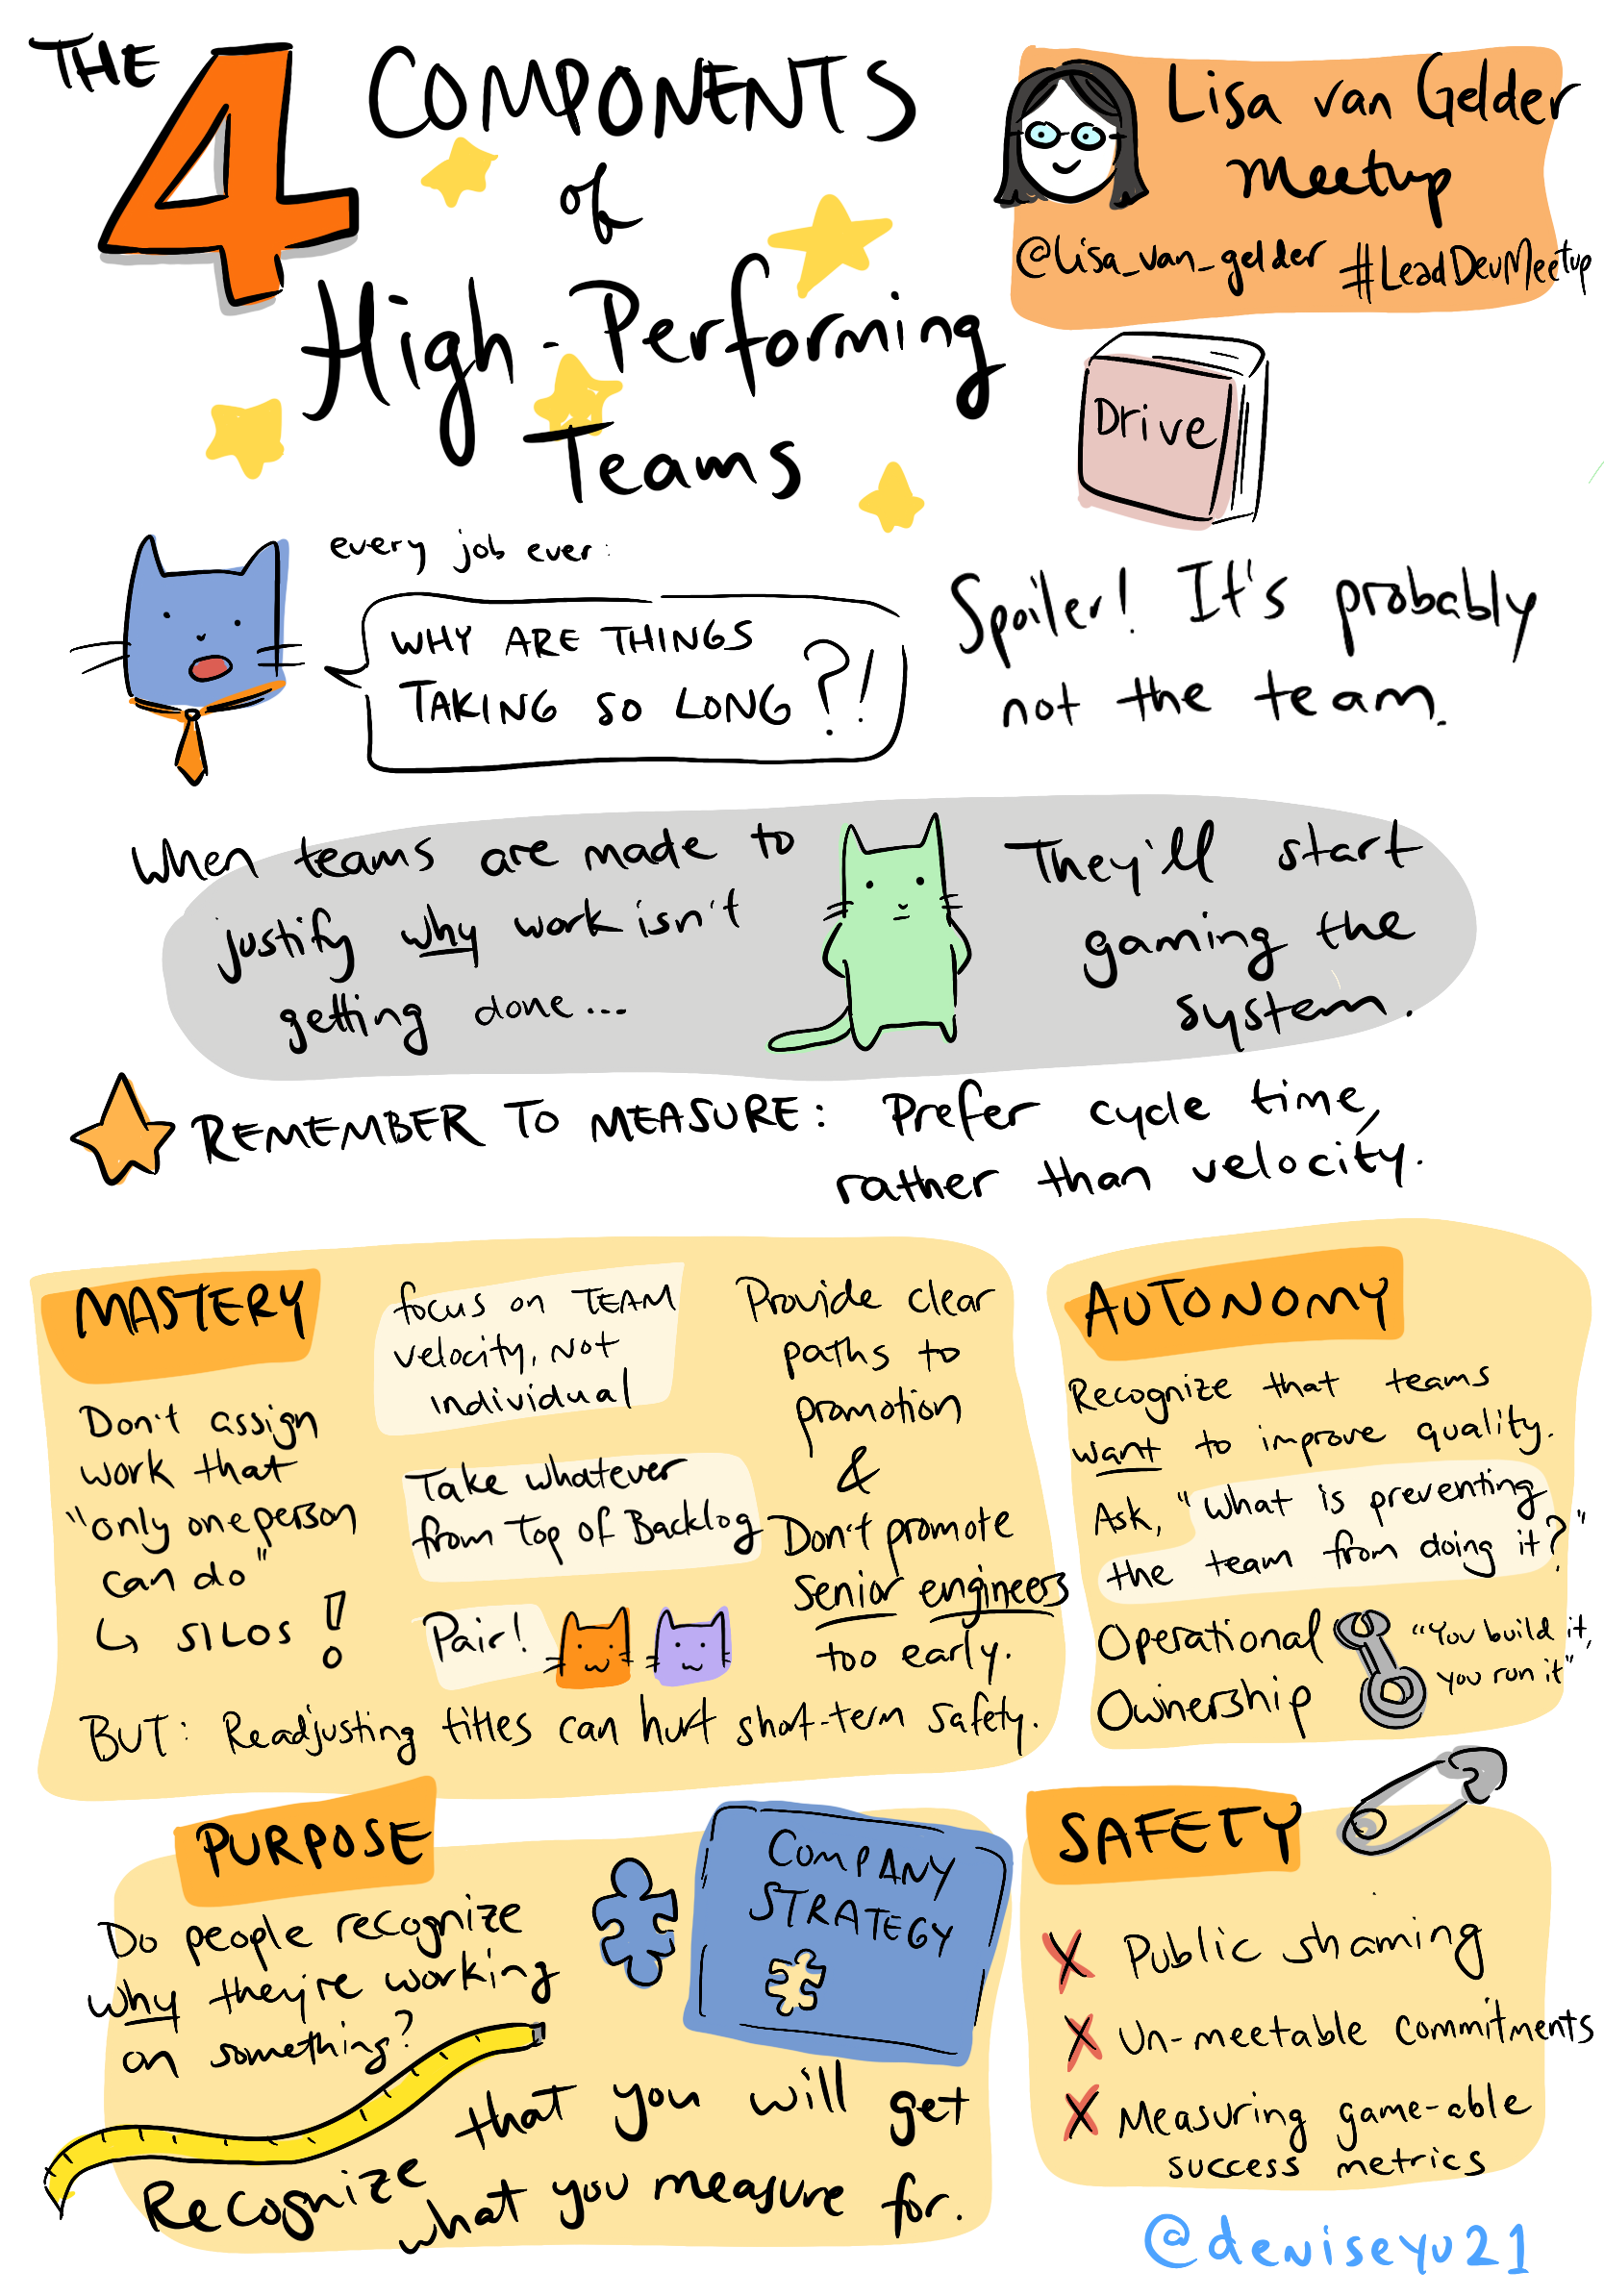 THE 4 COMPONENTS
of
High-Performing
Teams
Lisa van Gelder
Meetup
@lisa_van_gelder #LeadDevMeetup
Drive
every job ever:
WHY ARE THINGS
TAKING SO LONG?!
Spoiler! It's probably
not the team.
When teams are made to
justify why work isn't
getting done...
They'll start
gaming the
system.
REMEMBER TO MEASURE: Prefer cycle time,
rather than velocity.
MASTERY
Don't assign
work that
"only one person
can do"
↳ SILOS!
focus on TEAM
velocity, NOT
individual
Take whatever
from Top of Backlog
Pair!
Provide clear
paths to
promotion
&
Don't promote
senior engineers
too early.
BUT: Readjusting titles can hurt short-term safety.
AUTONOMY
Recognize that teams
want to improve quality.
Ask, "What is preventing
the team from doing it?"
Operational
Ownership
"You build it,
you run it"
PURPOSE
Do people recognize
why they're working
on something?
COMPANY
STRATEGY
Recognize that you will get
what you measure for.
SAFETY
X Public shaming
X Un-meetable commitments
X Measuring game-able
success metrics
@deniseyu21